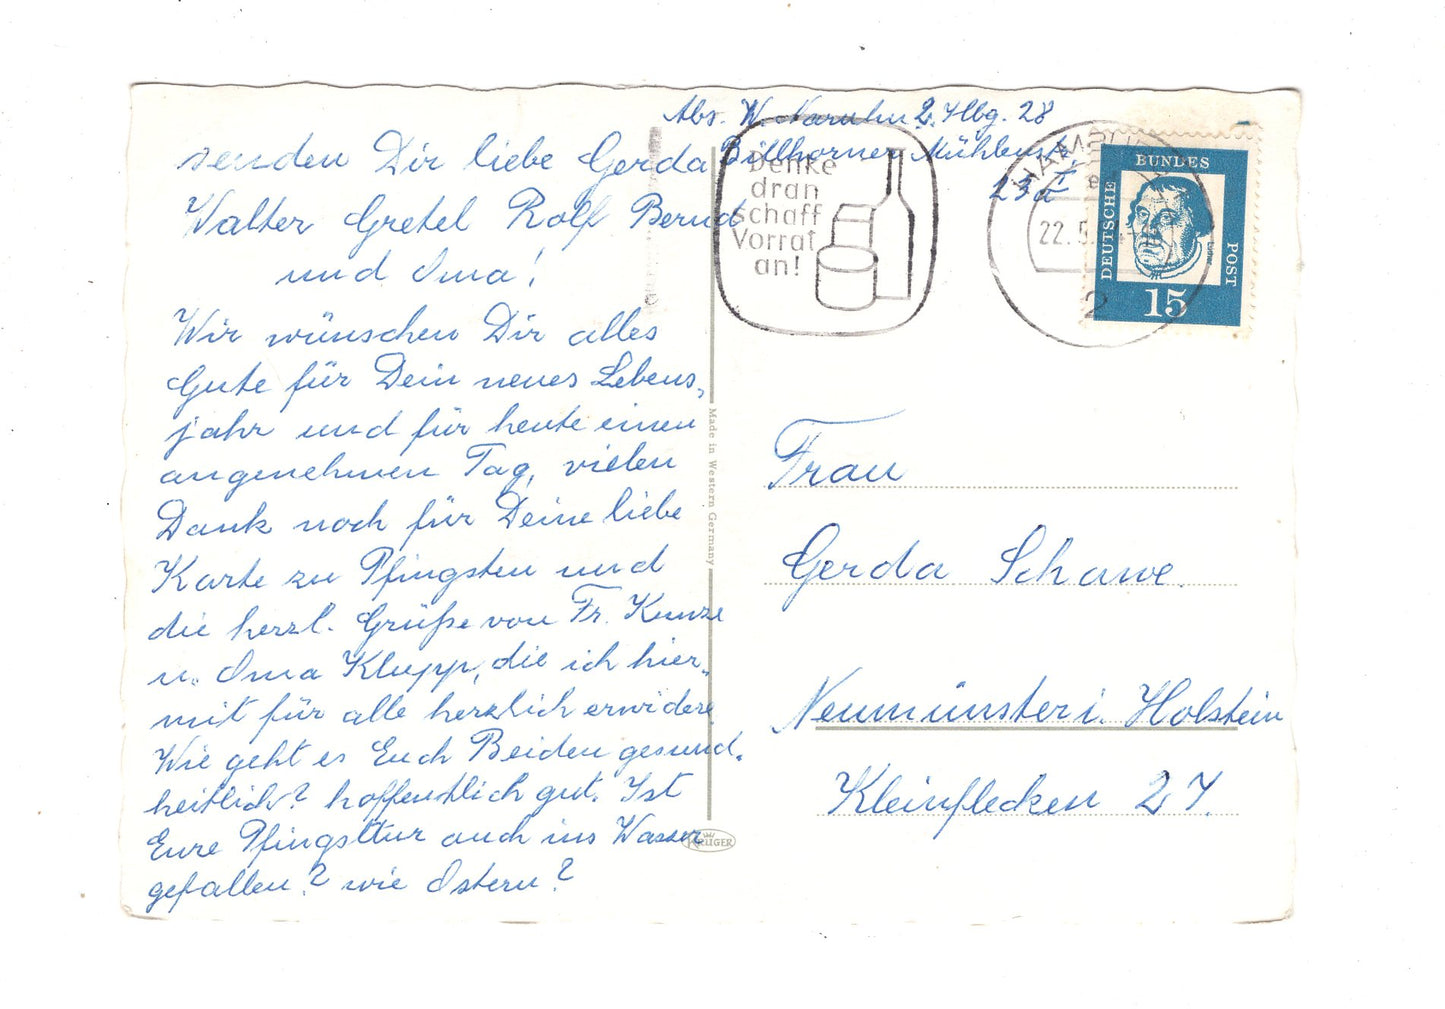 Abs. W. 2 Hbg. 28
Billhorner Mühlenst.
23a I
senden Dir liebe Gerda
Walter Gretel Rolf Bernd
und Oma!
Wir wünschen Dir alles
Gute für Dein neues Lebens,
jahr und für heute einen
angenehmen Tag, vielen
Dank noch für Deine liebe
Karte zu Pfingsten und
die herzl. Grüße von Fr. Kunze
u. Oma Klupp, die ich hier,
mit für alle herzlich erwidere.
Wie geht es Euch Beiden gesund,
heitlich? hoffentlich gut. Ist
Eure Pfingsttur auch ins Wasser
gefallen? wie Ostern?
Denke
dran
schaff
Vorrat
an!
HAMBURG
22.5.
2
DEUTSCHE
BUNDES
POST
Luther
15
Made in Western Germany
KRÜGER
Frau
Gerda Schawe
Neumünster i. Holstein
Kleinflecken 27.